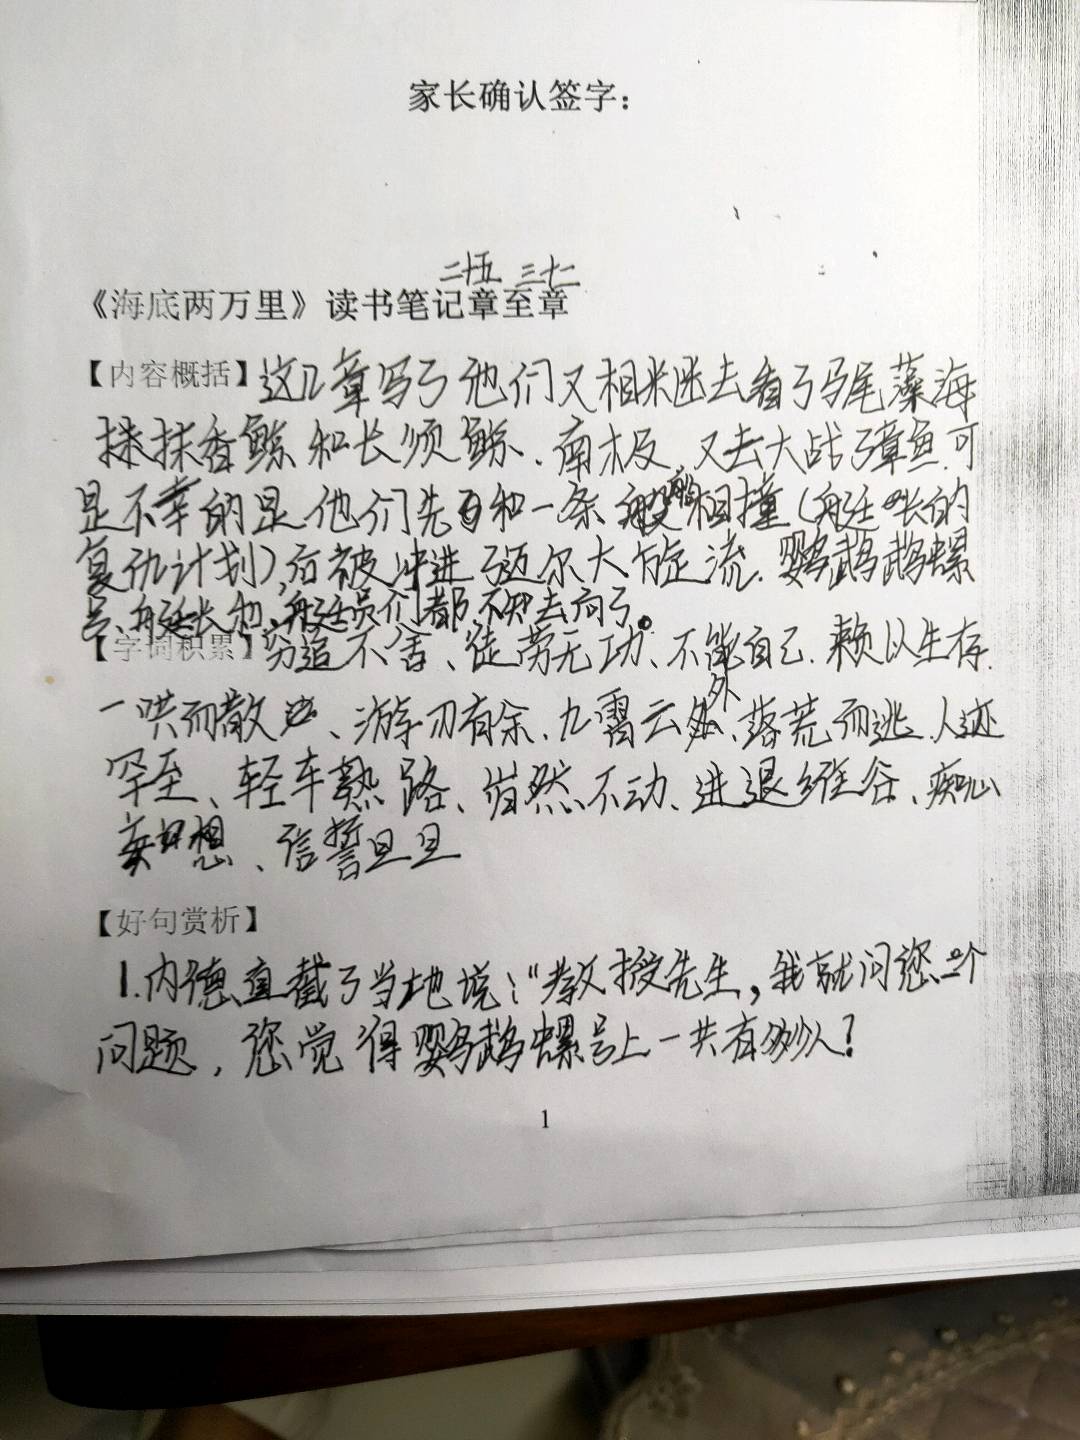 家长确认签字：
二十五 三十二
《海底两万里》读书笔记章至章
【内容概括】这几章写了他们又相继去看了马尾藻海
抹香鲸和长须鲸、南极，又去大战了章鱼.可
是不幸的是他们先和一条船相撞(艇长的
复仇计划),后被冲进了迈尔大旋流.鹦鹉鹉螺
号、艇长他,艇员们都不知去向了。
【字词积累】穷追不舍、徒劳无功、不能自己.赖以生存.
一哄而散、游刃有余、九霄云外、落荒而逃.人迹
罕至、轻车熟路、岿然不动、进退维谷、痴心
妄想、信誓旦旦
【好句赏析】
1.内德直截了当地说："教授先生，我就问您一个
问题，您觉得鹦鹉螺号上一共有多少人？
1